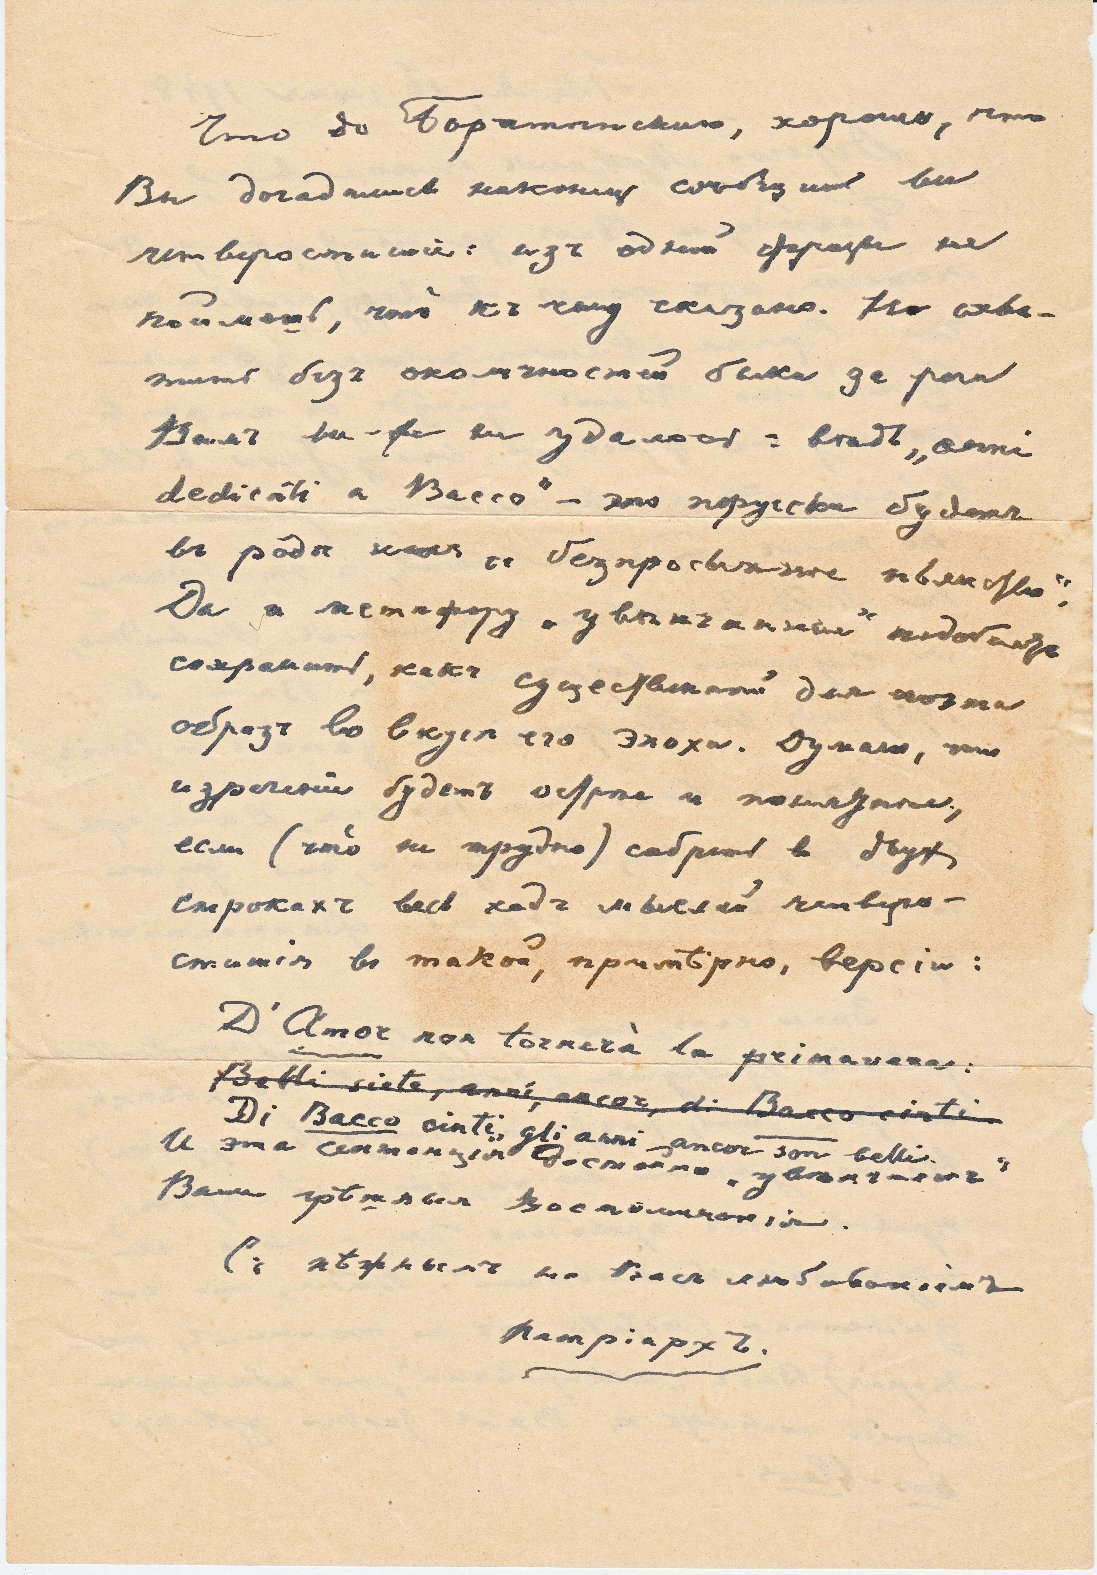 Что до Боратынскаго, хорошо, что
Вы догадались наконецъ сообщить все
четверостишіе: изъ одной фразы не
поймешь, что къ чему сказано. Но схва-
тить безъ околичностей быка за рога
Вамъ все-же не удалось: вѣдь „anni
dedicati a Bacco" – это порусски будетъ
въ родѣ какъ „безпросыпное пьянство".
Да и метафору „увѣнчанные" надобно
сохранить, какъ существенный для поэта
образъ во вкусѣ его эпохи. Думаю, что
изреченіе будетъ остро и
если (что не трудно) собрать в двух
строкахъ весь ходъ мыслей четверо-
стишія въ такой, примѣрно, версіи:
D'Amor non tornerà la primavera:
Belli siete, anni, ancor, di Bacco cinti
Di Bacco cinti, gli anni ancor son belli.
И эта сентенція достойно „увѣнчаетъ"
Ваши грѣшныя воспоминанія.
Съ нѣжнымъ на Васъ любованіемъ
Патріархъ.